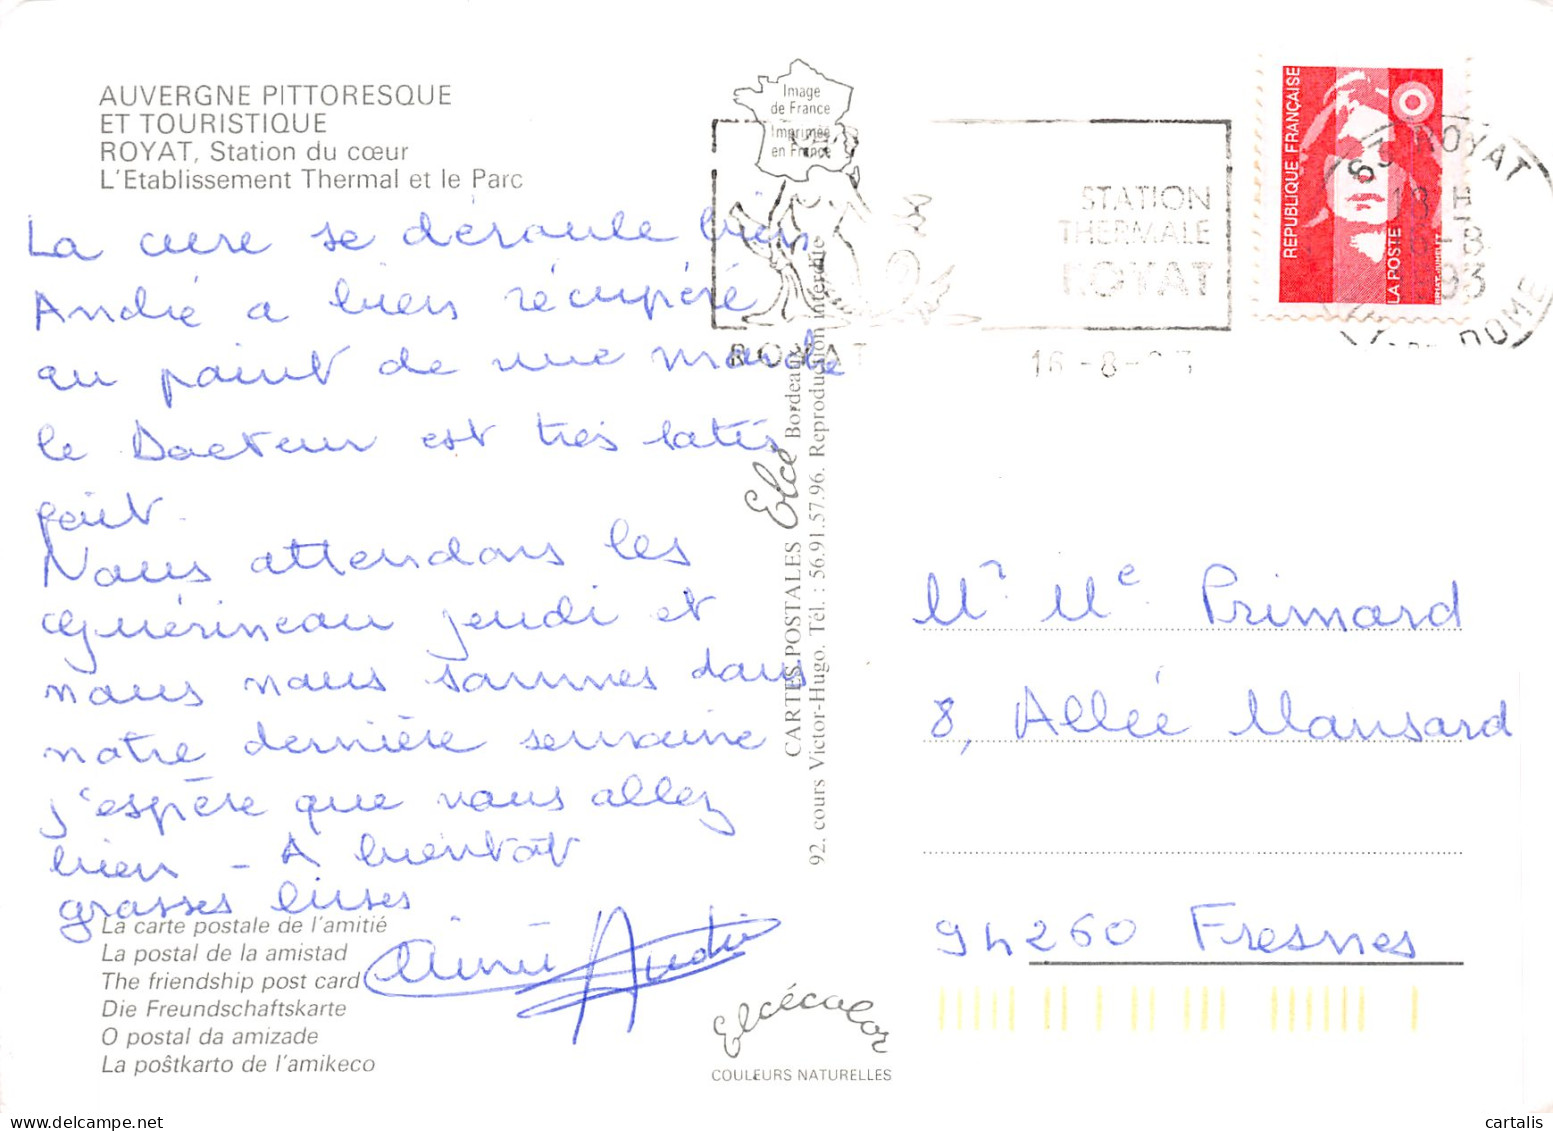 AUVERGNE PITTORESQUE
ET TOURISTIQUE
ROYAT, Station du cœur
L'Etablissement Thermal et le Parc
La cure se déroule bien
André a bien récupéré
au point de vue marche
le Docteur est très satis
fait.
Nous attendons les
Guérineau jeudi et
nous nous sommes dans
notre dernière semaine
j'espère que vous allez
bien - A bientôt
grosses bises
Aimée André
La carte postale de l'amitié
La postal de la amistad
The friendship post card
Die Freundschaftskarte
O postal da amizade
La poŝtkarto de l'amikeco
Image
de France
Imprimée
en France
ROYAT
STATION
THERMALE
ROYAT
16-8-93
REPUBLIQUE FRANÇAISE
LA POSTE
63 ROYAT
18 H
16-8
1993
PUY-DE-DOME
CARTES POSTALES Elcé Bordeaux
92, cours Victor-Hugo. Tél. : 56.91.57.96. Reproduction interdite
Mr Me Primard
8, Allée Mansard
94260 Fresnes
Elcécolor
COULEURS NATURELLES
cartalis